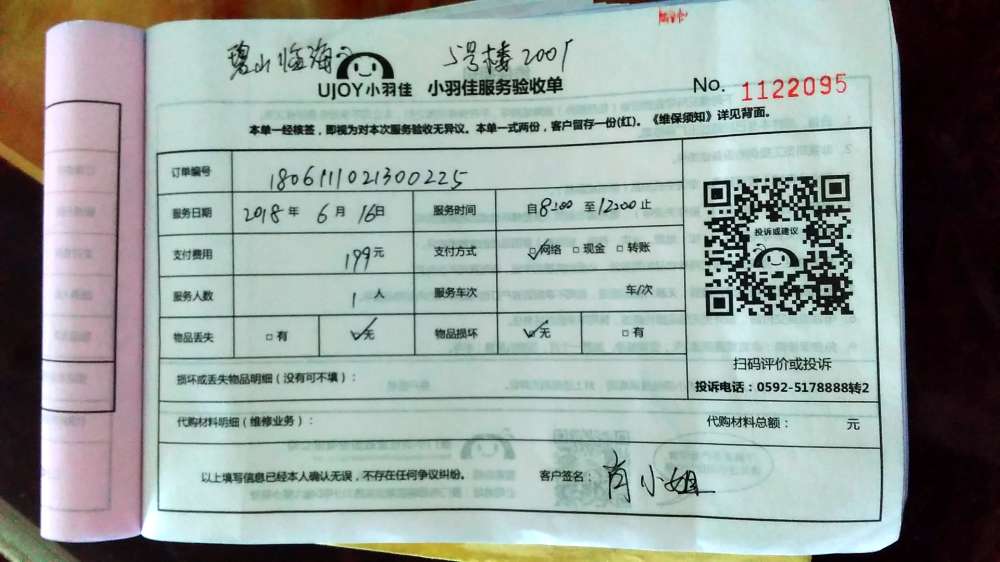 碧山临海 5号楼2001
UJOY小羽佳 小羽佳服务验收单 No. 1122095
本单一经核签,即视为对本次服务验收无异议。本单一式两份,客户留存一份(红)。《维保须知》详见背面。
订单编号 180611021300225
服务日期 2018年 6月 16日 服务时间 自8:00 至12:00止
支付费用 199元 支付方式 ☑网络 □现金 □转账
服务人数 1人 服务车次 车/次
物品丢失 □有 ☑无 物品损坏 ☑无 □有
损坏或丢失物品明细(没有可不填):
投诉或建议
扫码评价或投诉
投诉电话:0592-5178888转2
代购材料明细(维修业务): 代购材料总额: 元
以上填写信息已经本人确认无误,不存在任何争议纠纷。 客户签名: 肖小姐